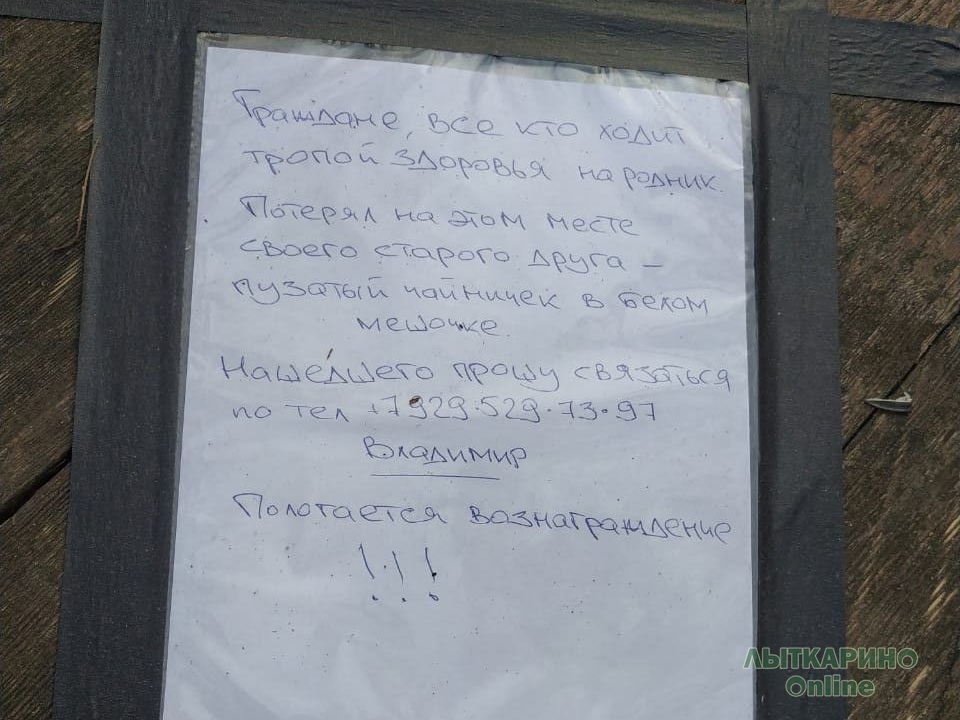 Граждане, все кто ходит
тропой здоровья на родник.
Потерял на этом месте
своего старого друга –
пузатый чайничек в белом
мешочке.
Нашедшего прошу связаться
по тел +7929·529·73·97
Владимир
Полотается вознаграждение
!!!
ЛЫТКАРИНО
Online